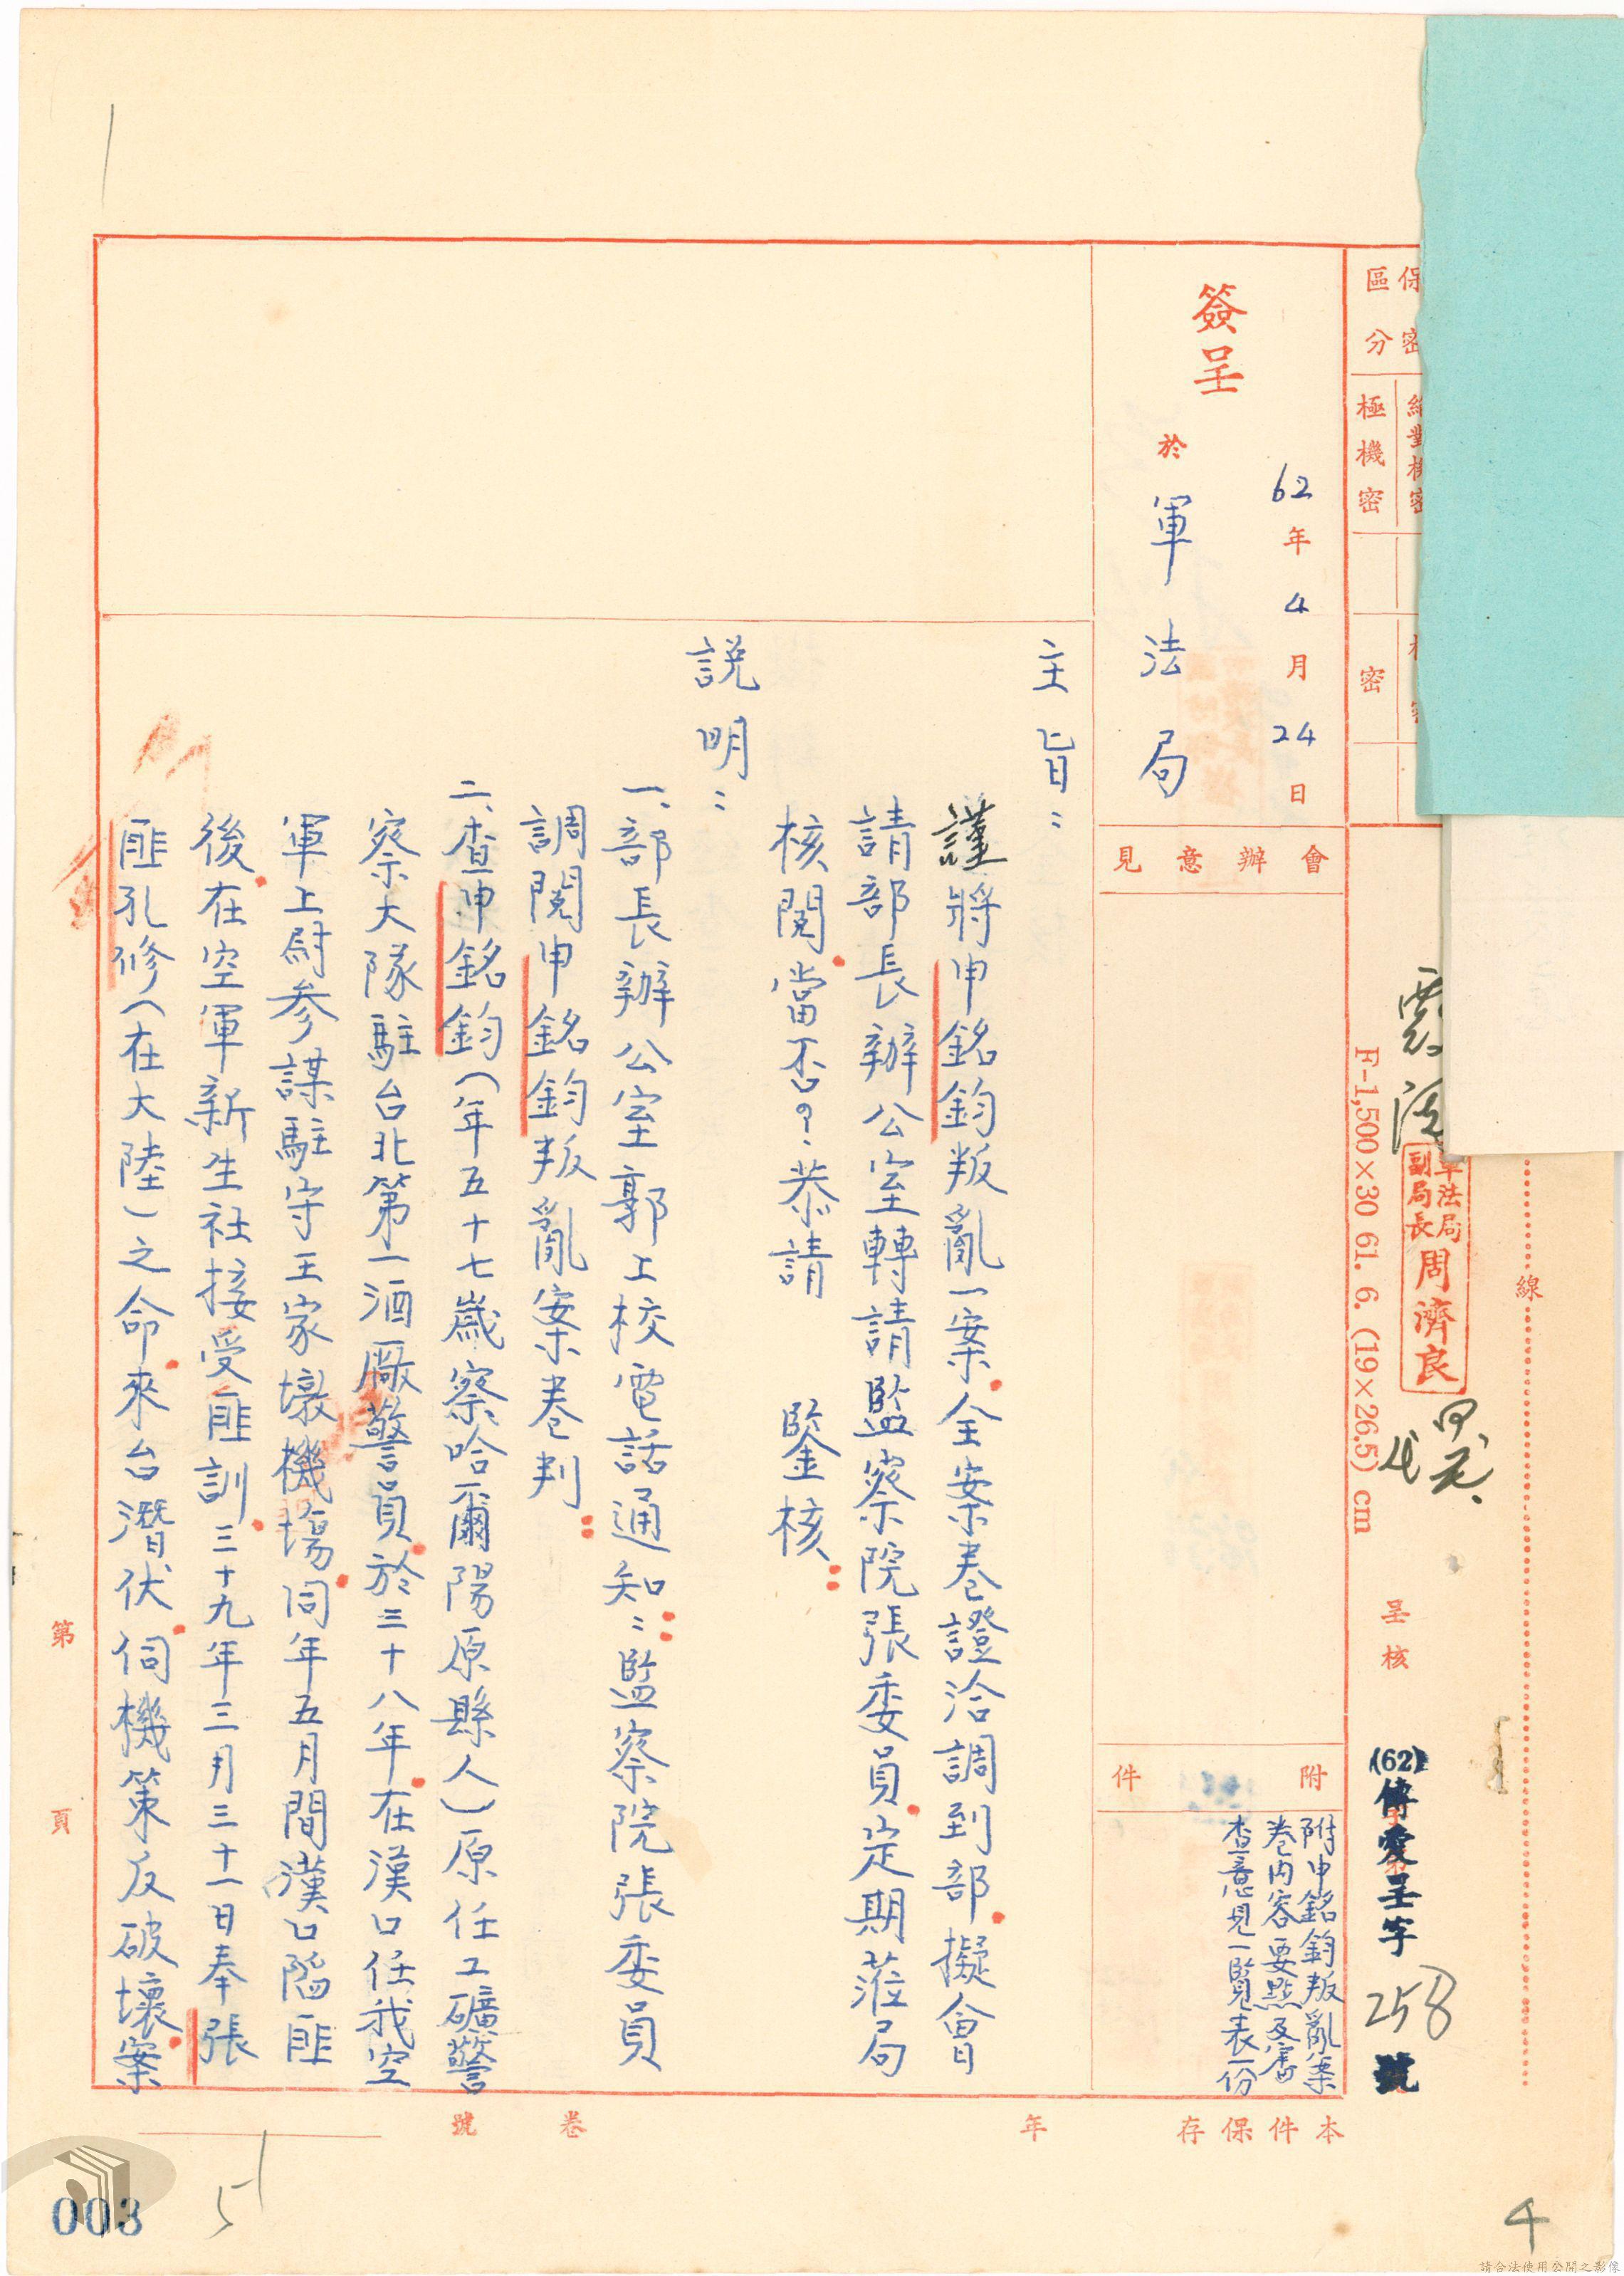 保密
區分
極機密
密
線
軍法局
副局長
周濟良
F-1,500×30 61. 6. (19×26.5) cm
呈核
(62)傳愛呈字258號
簽呈
62年4月24日
於軍法局
會辦意見
附件
附申銘鈞叛亂案
卷內容要點及審
查意見一覽表一份
主旨：
謹將申銘鈞叛亂一案全案卷證洽調到部擬會
請部長辦公室轉請監察院張委員定期蒞局
核閱當否？恭請 鑒核
說明：
一、部長辦公室郭上校電話通知：監察院張委員
調閱申銘鈞叛亂案卷判
二、查申銘鈞（年五十七歲察哈爾陽原縣人）原任工礦警
察大隊駐台北第一酒廠警員於三十八年在漢口任我空
軍上尉參謀駐守王家墩機場同年五月間漢口陷匪
後在空軍新生社接受匪訓三十九年三月三十一日奉張
匪孔修（在大陸）之命來台潛伏伺機策反破壞案
第 頁
本件保存 年
卷 號
003
4
請合法使用公開之影像